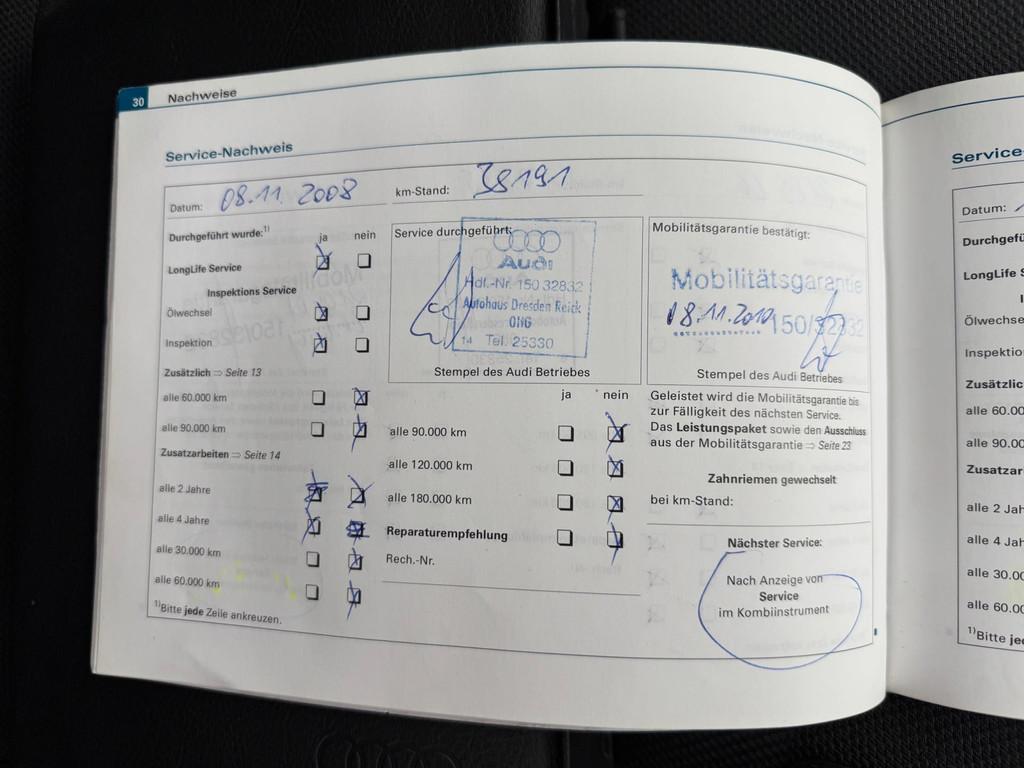 30 Nachweise
Service-Nachweis
Datum: 08.11.2008 km-Stand: 38191
Durchgeführt wurde:1) ja nein
LongLife Service
Inspektions Service
Ölwechsel
Inspektion
Zusätzlich ⇒ Seite 13
alle 60.000 km
alle 90.000 km
Zusatzarbeiten ⇒ Seite 14
alle 2 Jahre
alle 4 Jahre
alle 30.000 km
alle 60.000 km
1)Bitte jede Zeile ankreuzen.
Service durchgeführt:
Audi
Hdl.-Nr. 150 32832
Autohaus Dresden Reick
OHG
14 Tel. 25330
Stempel des Audi Betriebes
ja nein
alle 90.000 km
alle 120.000 km
alle 180.000 km
Reparaturempfehlung
Rech.-Nr.
Mobilitätsgarantie bestätigt:
Mobilitätsgarantie
08.11.2010 150/32832
Stempel des Audi Betriebes
Geleistet wird die Mobilitätsgarantie bis
zur Fälligkeit des nächsten Service.
Das Leistungspaket sowie den Ausschluss
aus der Mobilitätsgarantie ⇒ Seite 23
Zahnriemen gewechselt
bei km-Stand:
Nächster Service:
Nach Anzeige von
Service
im Kombiinstrument
Service
Datum:
Durchgefü
LongLife S
Ölwechse
Inspektion
Zusätzlic
alle 60.00
alle 90.00
Zusatzar
alle 2 Jah
alle 4 Jah
alle 30.00
alle 60.00
1)Bitte jed